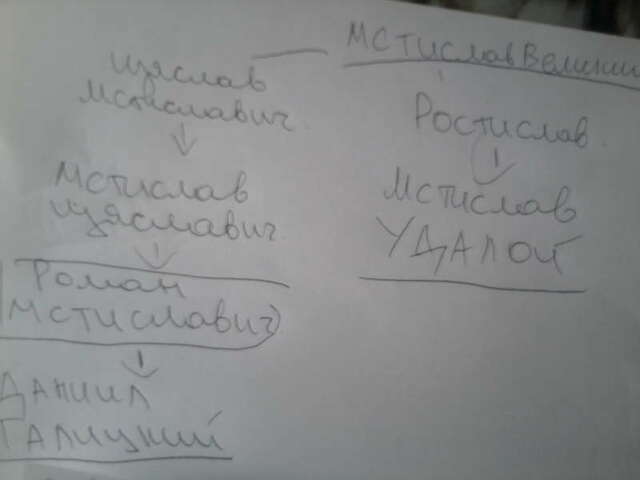 Мстислав Великий
Изяслав
Мстиславич.
Мстислав
Изяславич.
Роман
Мстиславич
Даниил
Галицкий
Ростислав.
Мстислав
Удалой